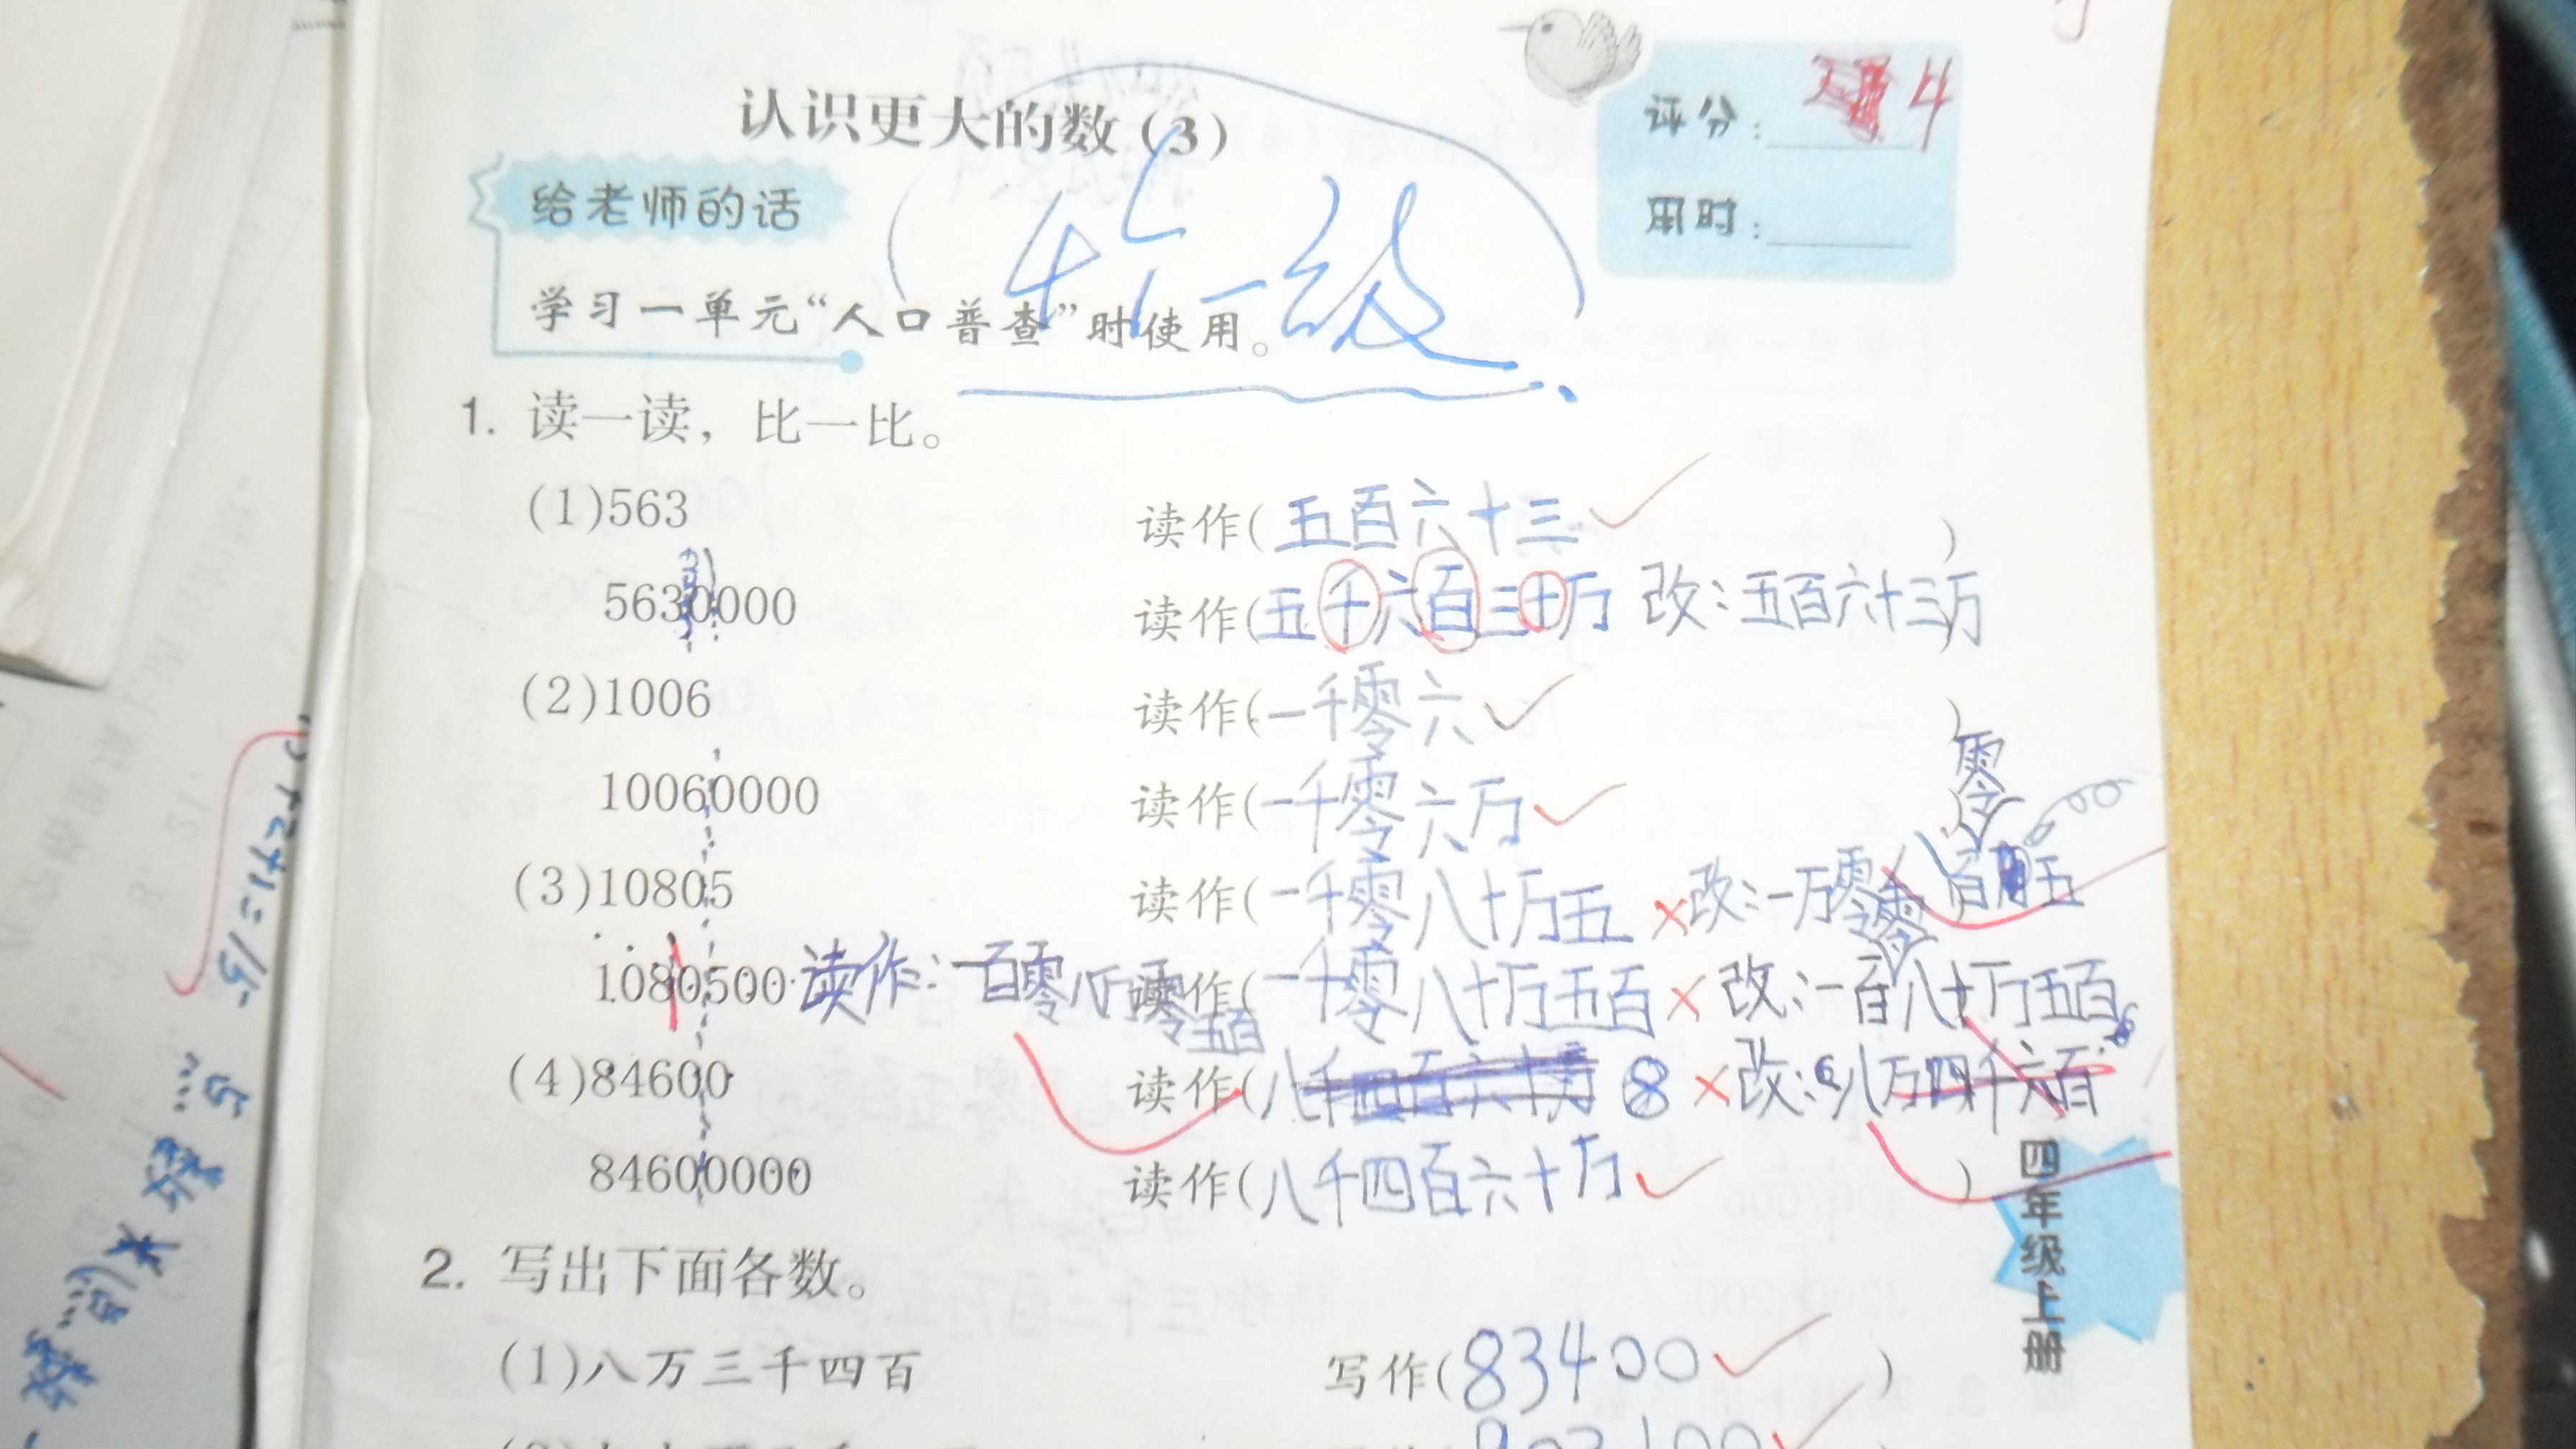 认识更大的数(3)
评分: 4
用时:
给老师的话
学习一单元“人口普查”时使用。
1. 读一读，比一比。
(1)563 读作(五百六十三)
5630000 读作(五千六百三十万 改:五百六十三万)
(2)1006 读作(一千零六)
10060000 读作(一千零六万)
零
(3)10805 读作(一千零八十万五 改:一万零八百五)
1080500 读作:一百零八万零五百 读作(一千零八十万五百 改:一百八十万五百
零
(4)84600 读作(八千四百六十万 改:八万四千六百
84600000 读作(八千四百六十万)
2. 写出下面各数。
(1)八万三千四百 写作(83400)
四年级上册